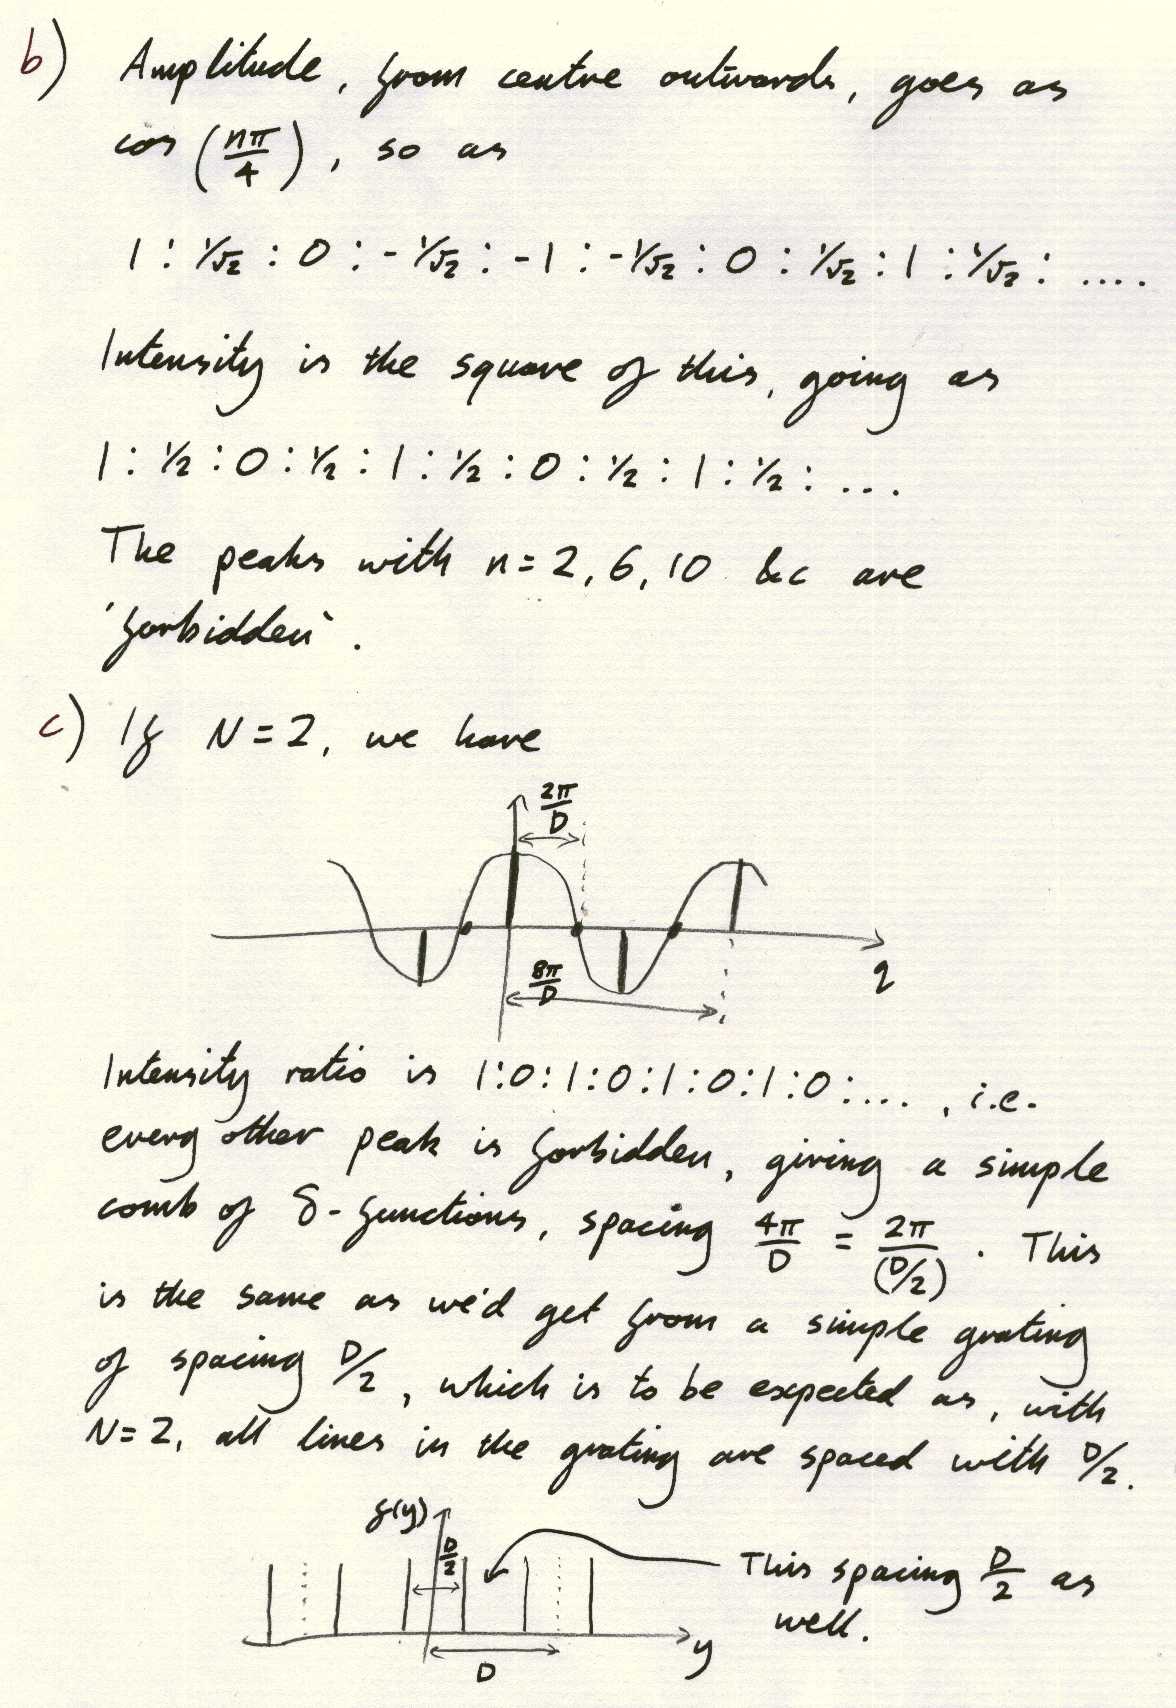 b) Amplitude, from centre outwards, goes as
cos (nπ/4), so as
1 : 1/√2 : 0 : -1/√2 : -1 : -1/√2 : 0 : 1/√2 : 1 : 1/√2 : ....
Intensity is the square of this, going as
1 : 1/2 : 0 : 1/2 : 1 : 1/2 : 0 : 1/2 : 1 : 1/2 : ...
The peaks with n=2, 6, 10 &c are
'forbidden'.
c) If N=2, we have
2π/D
8π/D
q
Intensity ratio is 1:0:1:0:1:0:1:0:...., i.e.
every other peak is forbidden, giving a simple
comb of δ-functions, spacing 4π/D = 2π/(D/2). This
is the same as we'd get from a simple grating
of spacing D/2, which is to be expected as, with
N=2, all lines in the grating are spaced with D/2.
f(y)
D/2
This spacing D/2 as
well.
y
D